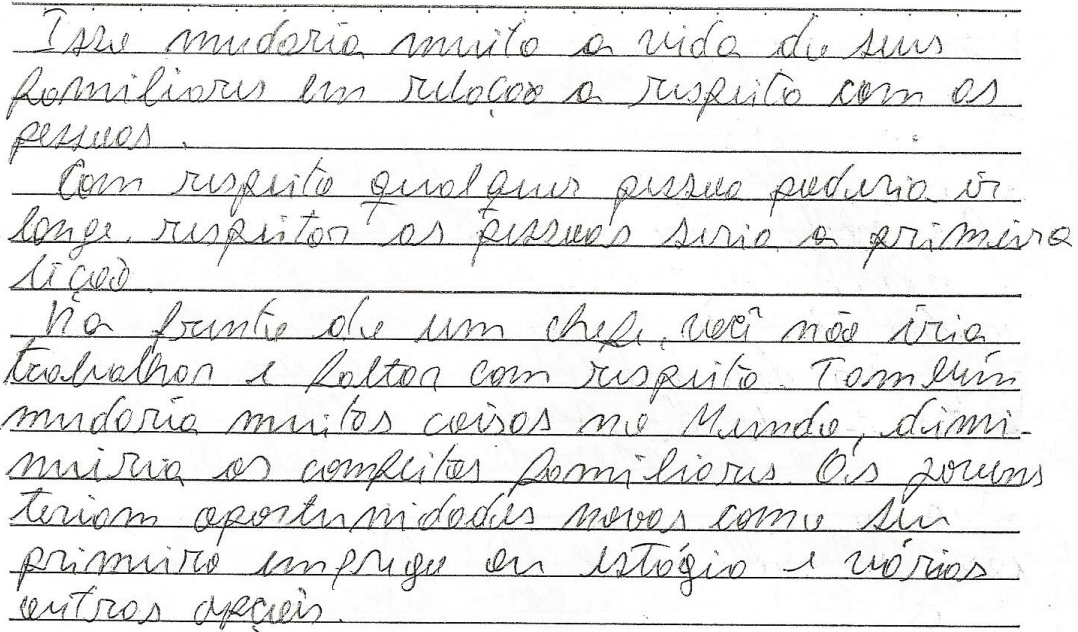 Isso mudaria muito a vida de seus
familiares em relação a respeito com as
pessoas.
Com respeito qualquer pessoa poderia ir
longe. respeitar as pessoas seria a primeira
lição.
Na frente de um chefe, você não iria
trabalhar e faltar com respeito. Também
mudaria muitas coisas no Mundo, dimi-
nuiria os comfeitos familiares. Os jovens
teriam oportunidades novas como seu
primeiro emprego ou estágio e várias
outras opções.